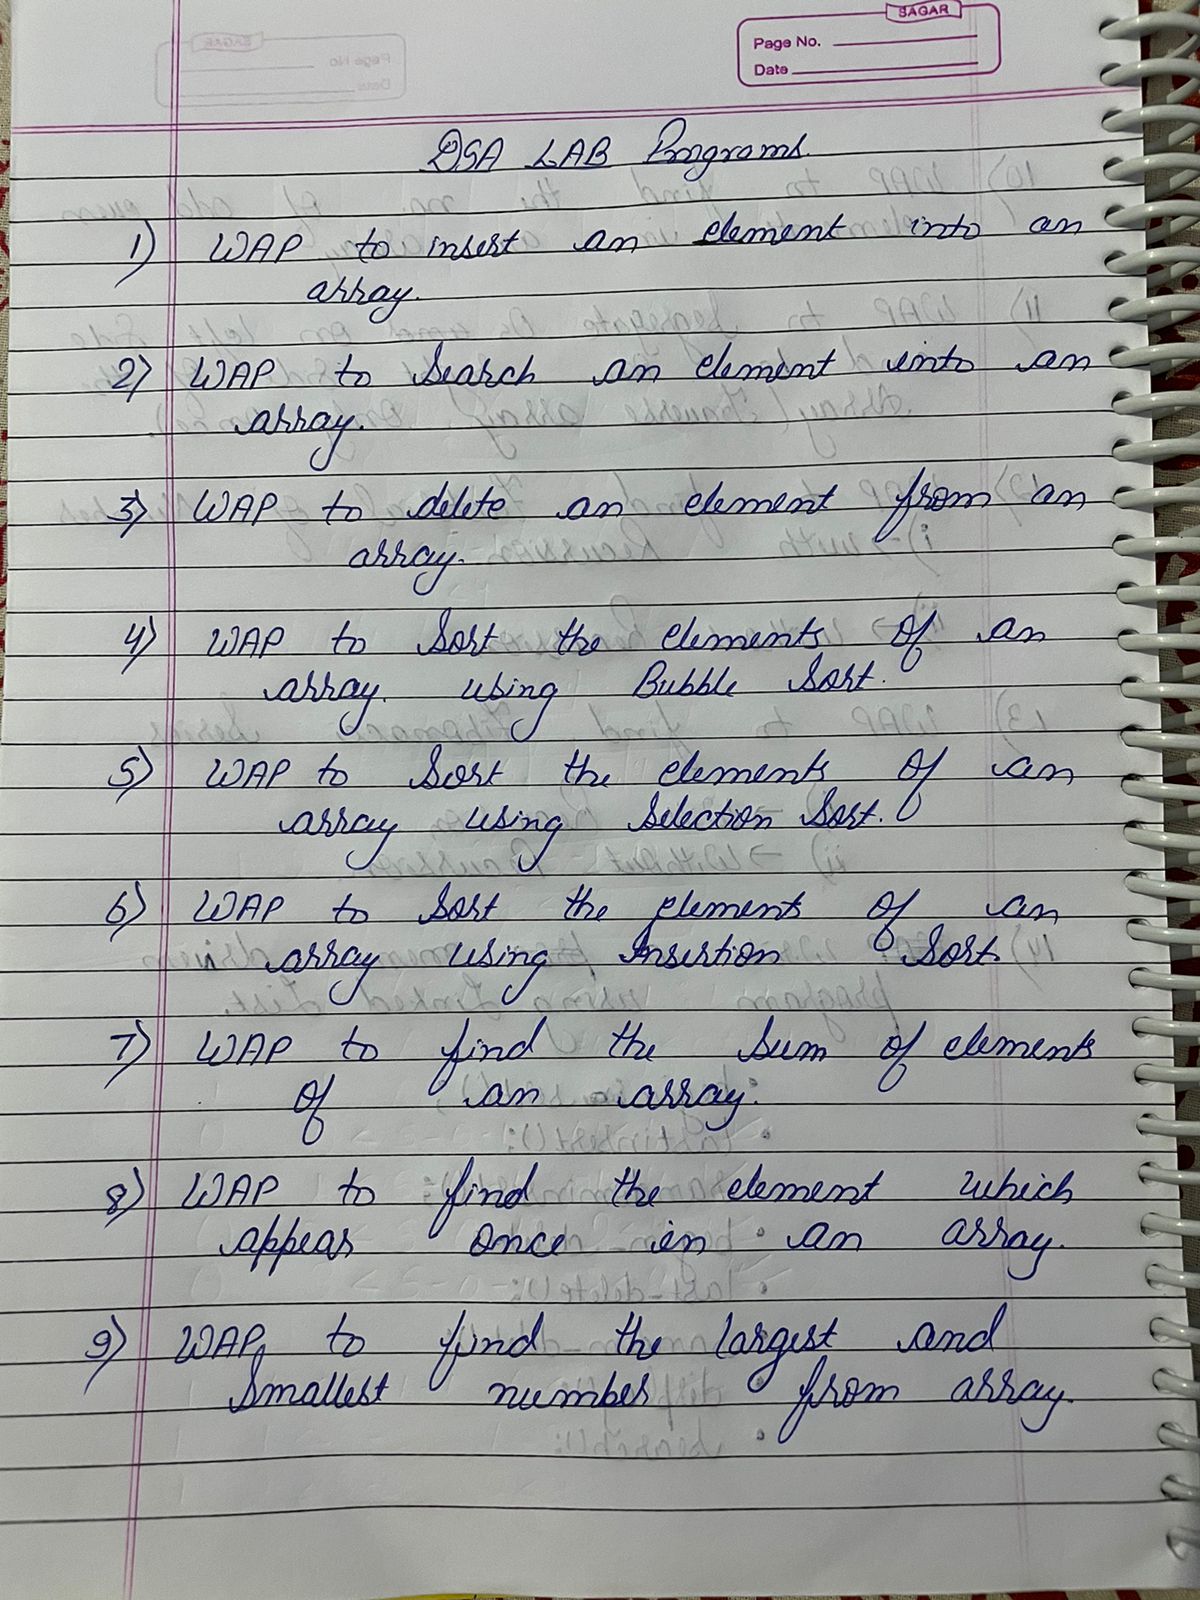 SAGAR
Page No.
Date
DSA LAB Programs.
1) WAP to insert an element into an
array.
2) WAP to Search an element into an
array.
3) WAP to delete an element from an
array.
4) WAP to Sort the elements of an
array. using Bubble Sort.
5) WAP to Sort the elements of an
array using Selection Sort.
6) WAP to Sort the elements of an
array using Insertion Sort.
7) WAP to find the Sum of elements
of an array.
8) WAP to find the element which
appear once in an array.
9) WAP to find the largest and
Smallest number from array.